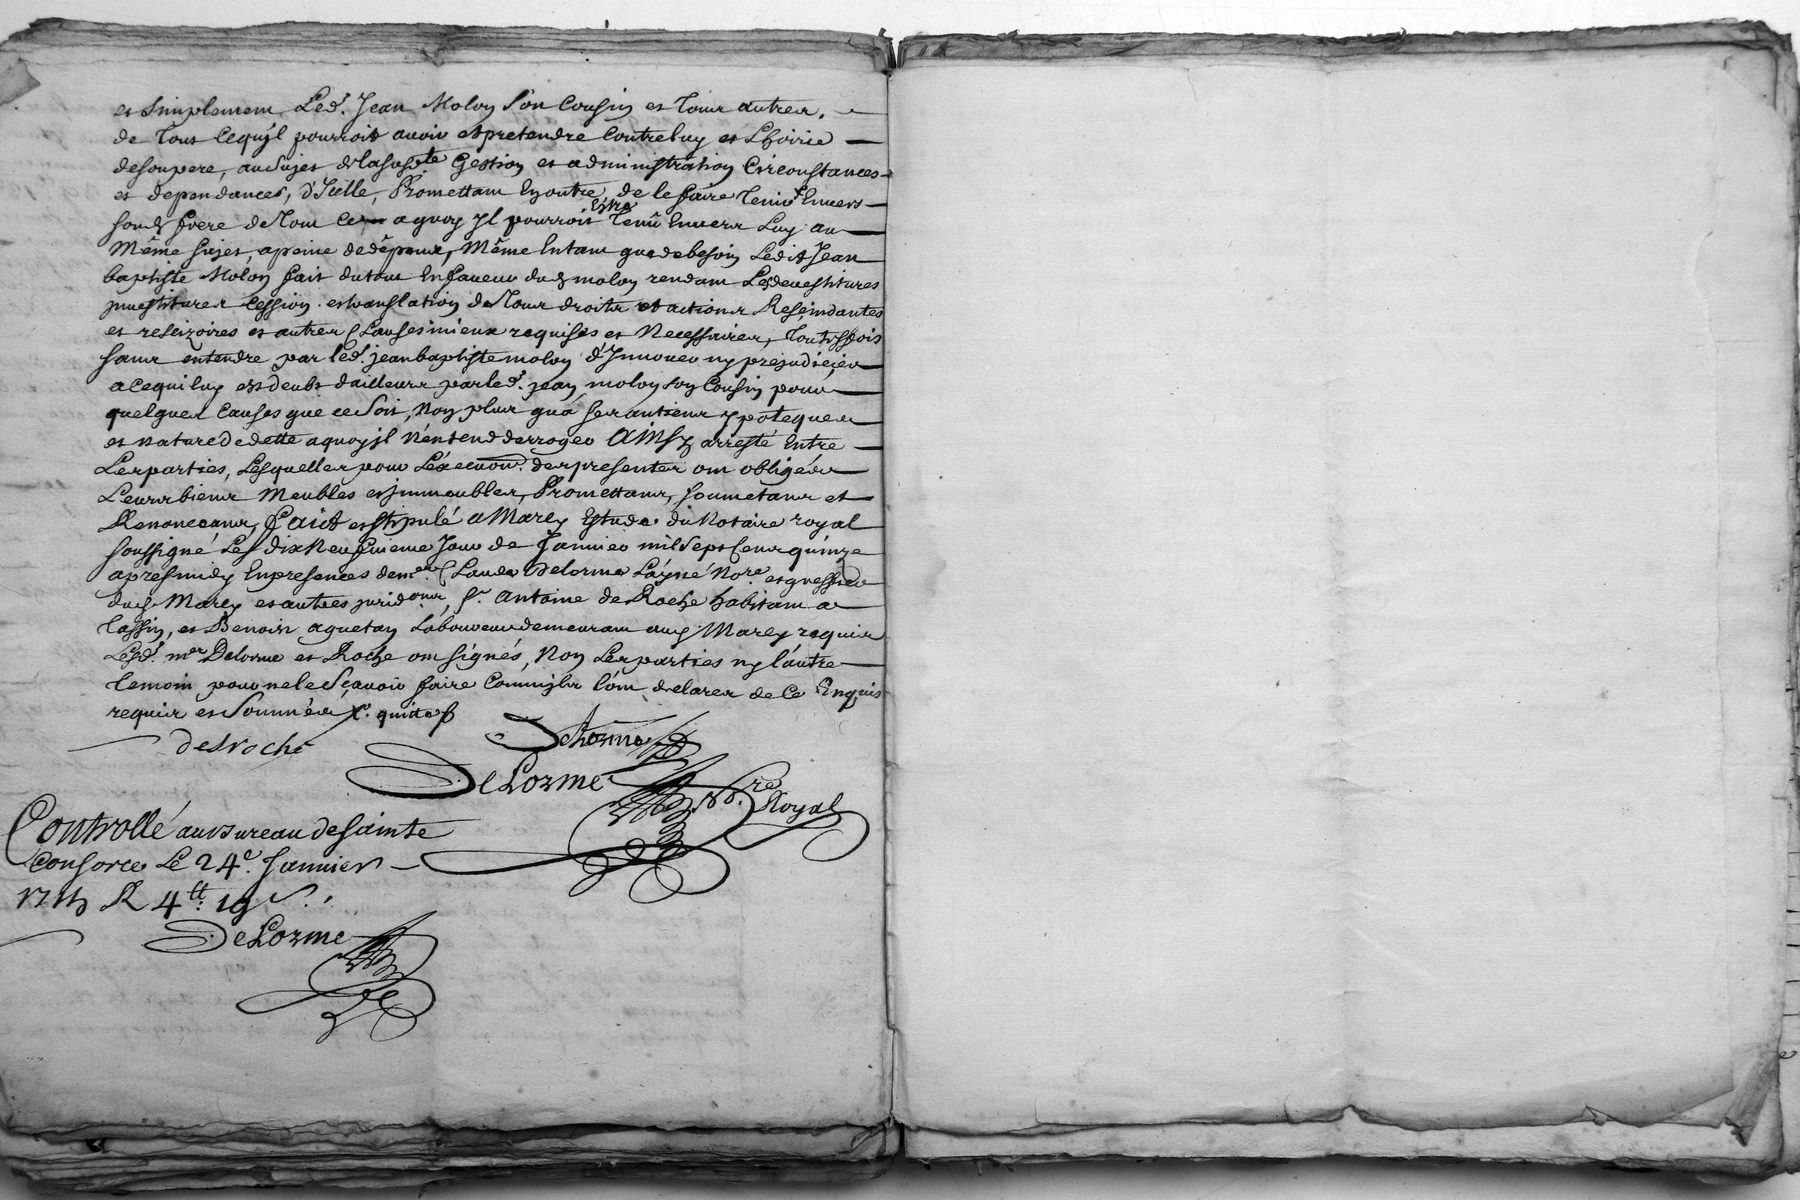 et simplement Led. Jean Molon Son Cousin et Tous autres.
de Tous Cequjl pourroit avoir et pretendre Contreluy et Lhoirie
desonpere, au Sujet delasusd.te Gestion et administration Circonstances
et dependances, d'Jcelle, Promettant Enoutre de le faire Tenir Envers
Sond. frere de Tout Ce aquoy jl pourroit Estre Tenû Envers Luy au
Même Sujet, apeine dedêpens, Même Entant quedebesoin Ledit Jean
baptiste Molon fait dutout Enfaveur dud. molon rendant Lesdevestitures
jnvestitures Cession et translation deTous droits et actions Rescindantes
et rescizoires et autres Clauses mieux requises et Necessaires, Toutesfois
Sans entendre par led. jeanbaptiste molon d'Jnnover ny prejudicier
acequi luy est deubt dailleurs parled. jean molon son Cousin pour
quelques Causes que ce Soit, Non plus qu'a Ses antieur ypoteques
et nature de dette aquoy jl N'entend derroger Ainsy arresté Entre
Lesparties, Lesquelles pour L'execuon. desp̃resentes ont obligées
Leurs biens Meubles et jmmeubles, Promettans, Soumetans et
Renoncans, faict et stipulé a Marcy Estude du Notaire royal
Soussigné Le dix Neufuieme Jour de Janvier mil Sept Cent quinze
apresmidy En presences de m.e Claude Delorme L'aysné No.re et greffier
dud. Marcy et autres jurid.ons, S.r Antoine de Roche habitant a
Tassin, et Benoist aquetan Laboureur demeurant aud. Marcy requis
Lesd. m.e Delorme et Roche ont Signés, Non Lesparties ny l'autre
temoin pour ne le Sçavoir faire Comm'jls l'ont declarer de Ce Enquis
requis et Sommés quitte
desroche
Delorme
DeLorme No.re Royal
Controllé au Bureau de Sainte
Consorce Le 24e. Janvier
1715 R 4tt. 19 s.
DeLorme